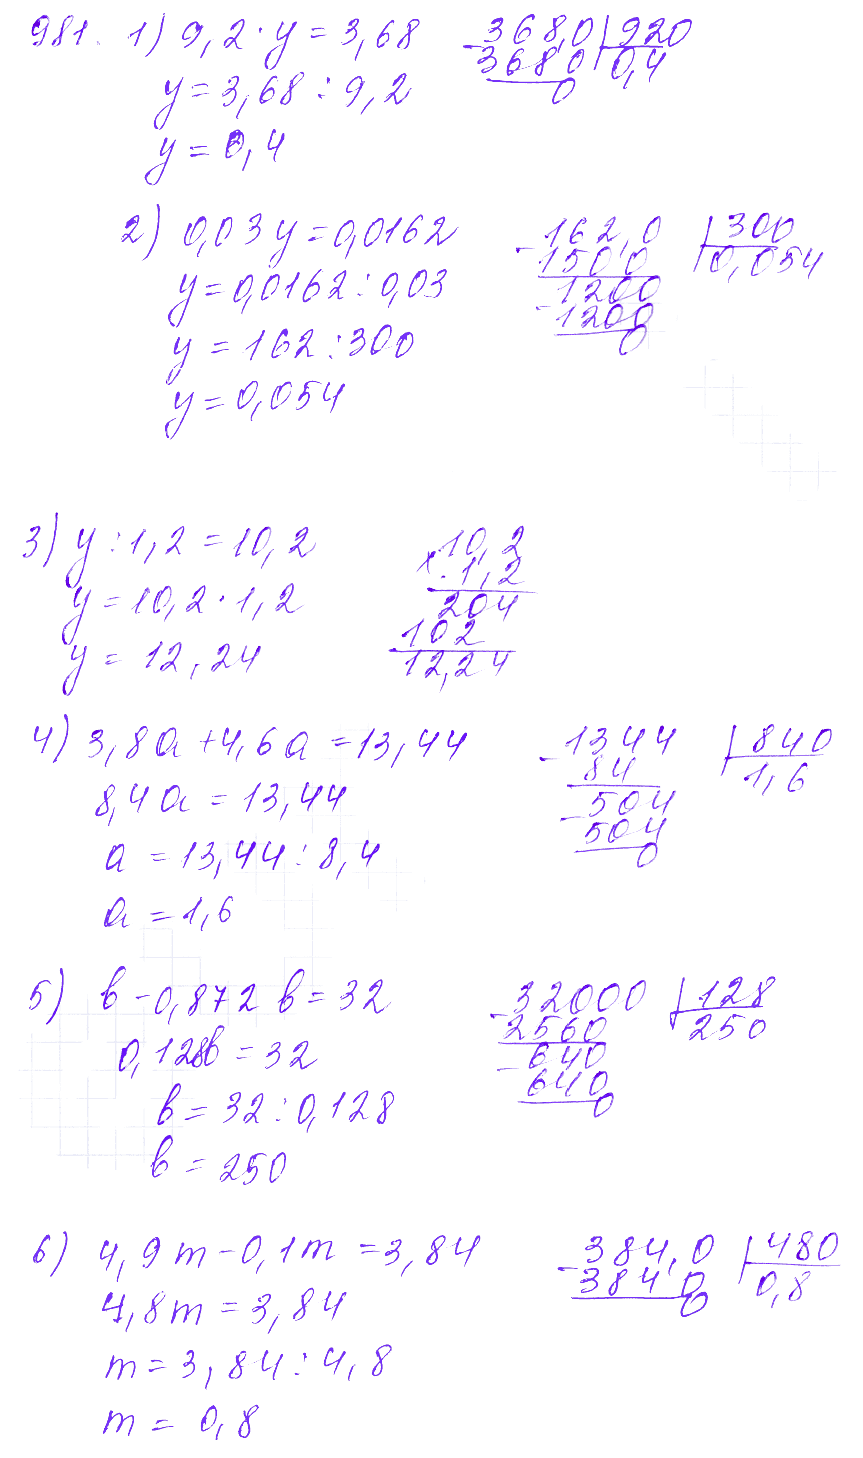 981. 1) 9,2 · y = 3,68
y = 3,68 : 9,2
y = 0,4
368,0 | 920
- 368 0 | 0,4
0
2) 0,03 y = 0,0162
y = 0,0162 : 0,03
y = 162 : 300
y = 0,054
- 162,0 | 300
150 0 | 0,054
- 1200
1200
0
3) y : 1,2 = 10,2
y = 10,2 · 1,2
y = 12,24
x 10,2
1,2
204
102
12,24
4) 3,8a + 4,6a = 13,44
8,4a = 13,44
a = 13,44 : 8,4
a = 1,6
- 1344 | 840
84 | 1,6
- 504
504
0
5) в - 0,872 в = 32
0,128в = 32
в = 32 : 0,128
в = 250
- 32000 | 128
2560 | 250
- 640
640
0
6) 4,9m - 0,1m = 3,84
4,8m = 3,84
m = 3,84 : 4,8
m = 0,8
- 384,0 | 480
384 0 | 0,8
0